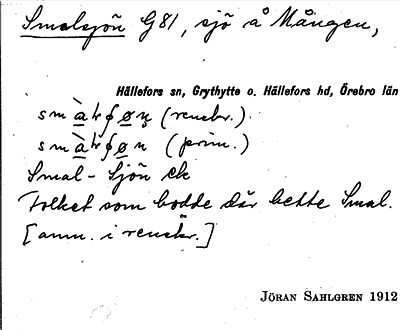 Smalsjön G81, sjö å Mången,
Hällefors sn, Grythytte o. Hällefors hd, Örebro län
(renskr.)
(prim.)
Smal-Sjön
Folket som bodde där hette Smal.
[anm. i renskr.]
JÖRAN SAHLGREN 1912